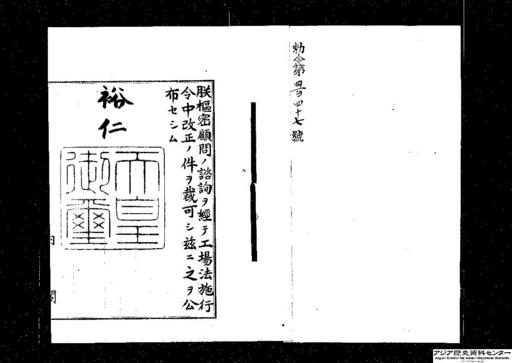 勅令第四百四十七號
朕樞密顧問ノ諮詢ヲ經テ工場法施行
令中改正ノ件ヲ裁可シ茲ニ之ヲ公
布セシム
裕仁
天皇
御璽
内
閣
アジア歴史資料センター
Japan Center for Asian Historical Records